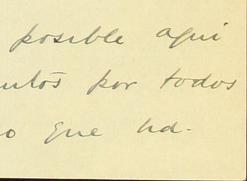 posible aqui
ntos por todos
o que ud.